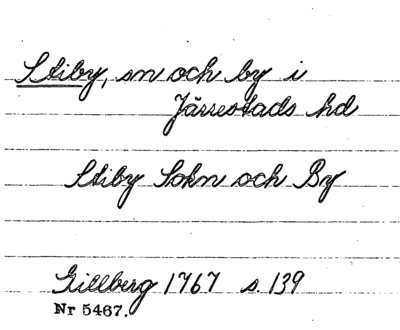 Stiby, sn och by i
Järrestads hd
Stiby Sokn och By
Gillberg 1767 s. 139
Nr 5467.